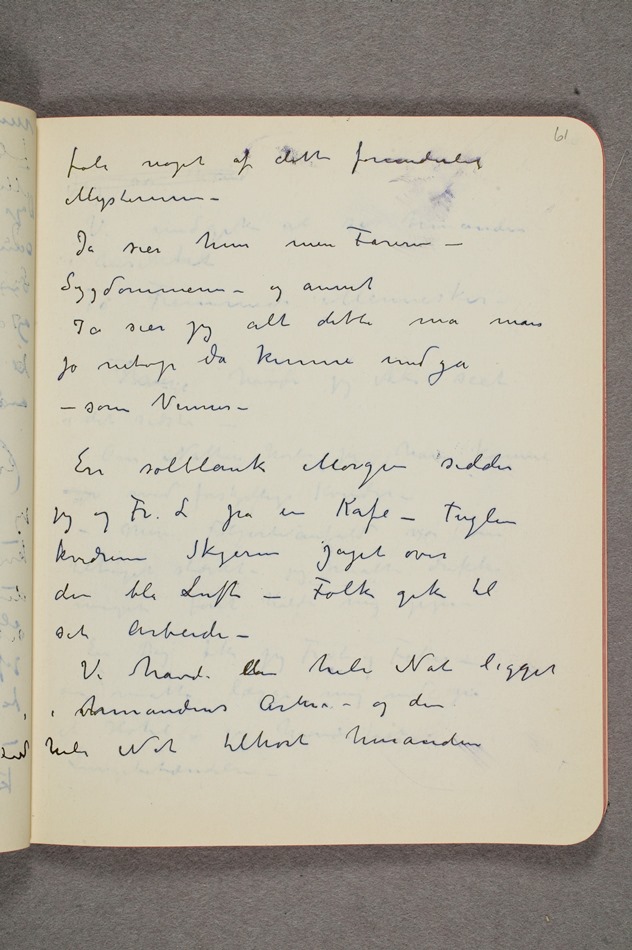 61
føle noget af dette forunderlige
Mysterium –
Ja sier hun men Faren –
Sygdommene – og annet
Ja sier jeg alt dette må man
jo netop da kunne undgå
– som Venner –
En solblank Morgen sidder
jeg og Fr. L på en Kafe – Fuglene
kvidrer Skyerne jaget over
den blå Luft – Folk gik til
sit Arbeide –
Vi havde den hele Nat ligget
i hinandens Arme – og den
hele Nat tilhørt hinanden